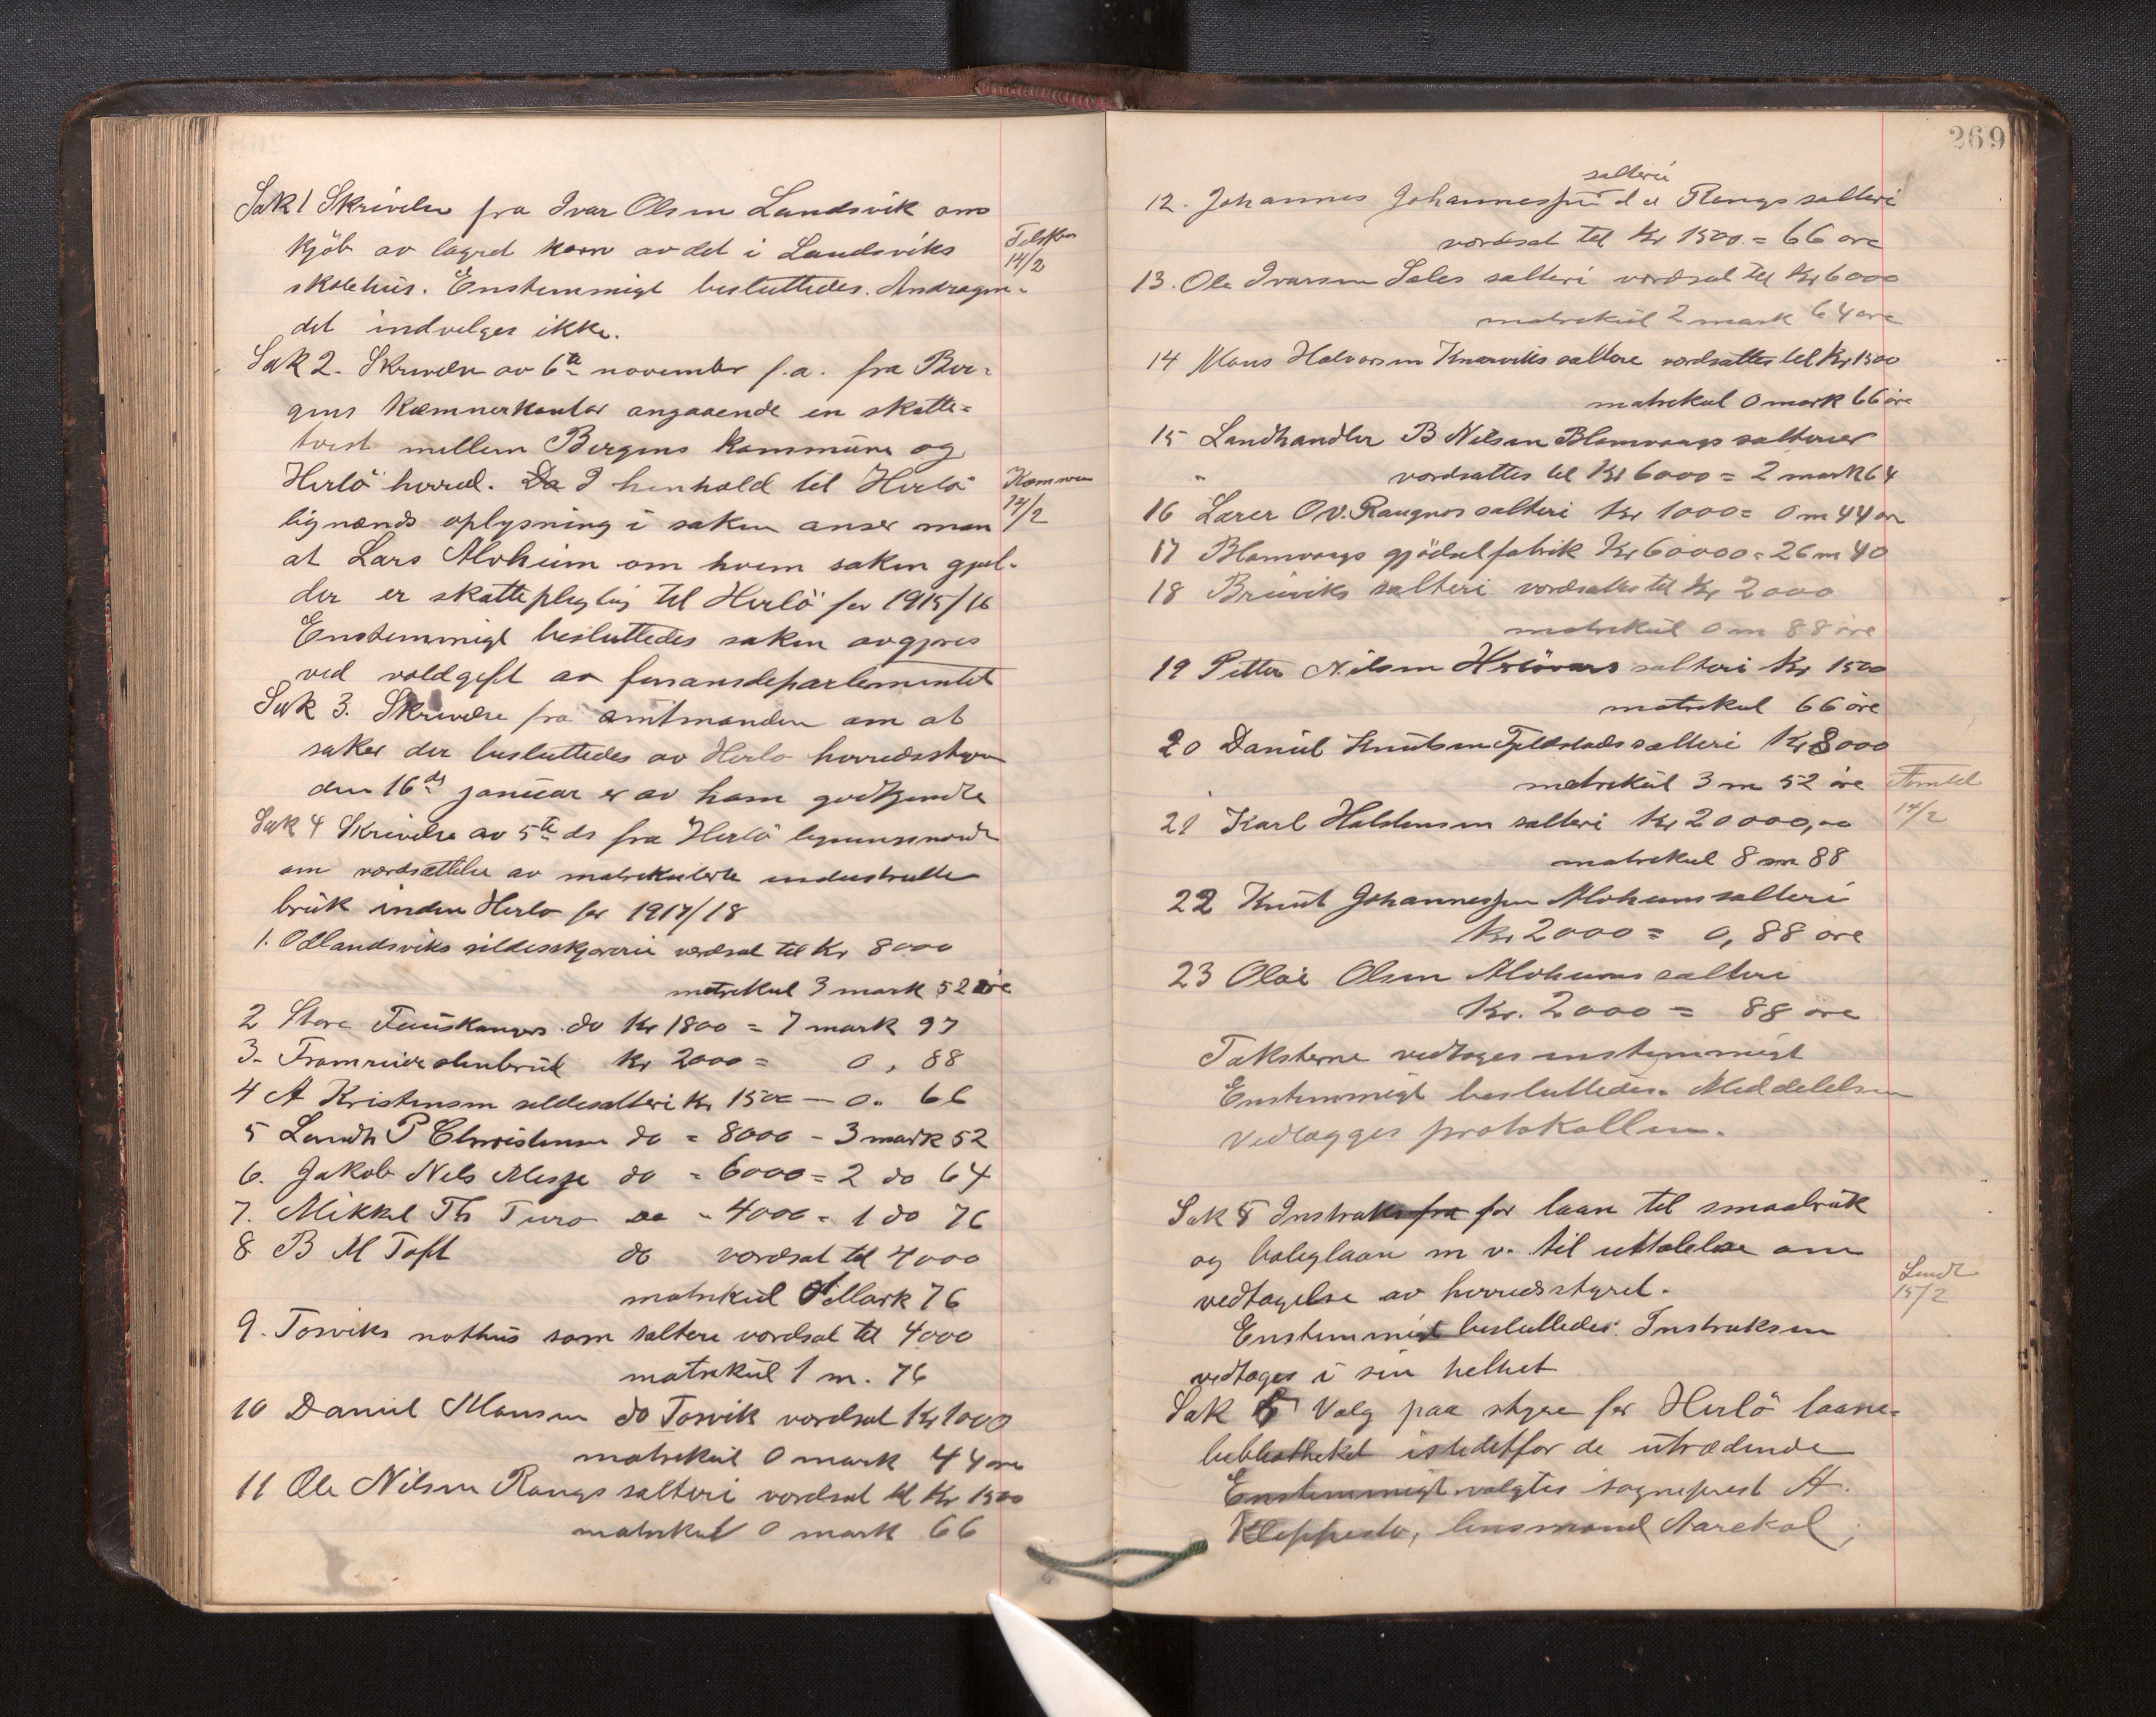 Sak 1 Skrivelse fra Ivar Olsen Landsvik om
kjöb av lagret korn av det i Landsviks
skolehus. Enstemmigt besluttedes. Andragen-
det indvelges ikke.
14/2
Sak 2. Skrivelse av 6te november f.a. fra Ber-
gens Kæmnerkontor angaaende en skatte-
tvist mellem Bergens kommune og
Herlö herred. Da I henhold til Herlö
lignænds oplysning i saken anser man
14/2
at Lars Alvheim om hvem saken gjel-
der er skattepligtig til Herlö for 1915/16
Enstemmigt besluttedes saken avgjöres
ved voldgift av finansdepartementet
Sak 3. Skrivelse fra amtmanden om at
saker der besluttedes av Herlo herredsstyre
den 16de januar er av ham godkjendte
Sak 4 Skrivelse av 5te ds fra Herlö ligningsnevnd
om værdsættelse av matrikulerte industrielle
bruk inden Herlo for 1917/18
1. Odlandsviks sildeskjæreri værdsat til Kr 8000
matrikul 3 mark 52 öre
2 Store do Kr 1800 = 7 mark 97
3. Kr 2000 = 0, 88
4 A Kristensen sildesalteri Kr 1500 — 0. 66
5 Landh P Christensen do = 8000 - 3 mark 52
6. Jakob Nils Misje do = 6000 = 2 do 64
7. Mikkel Th Turö do - 4000 = 1 do 76
8 B M Toft do værdsat til 4000
matrikul 1 Mark 76
9. Torviks nothus som salteri værdsat til 4000
matrikul 1 m. 76
10 Daniel Monsen do Torvik værdsat Kr 1000
matrikul 0 mark 44 öre
11 Ole Nilsen Rongs salteri værdsat til Kr 1500
matrikul 0 mark 66
269
salteri
12. Johannes Johannessen d.e Rongs salteri
værdsat til Kr 1500 = 66 öre
13. Ole Ivarsen Soles salteri værdsat til Kr 6000
matrikul 2 mark 64 öre
14 Mons Halvorsen Knarviks salteri værdsættes til Kr 1500
matrikul 0 mark 66 öre
15 Landhandler B Nilsen Blomvaags salterier
" værdsættes til Kr 6000 = 2 mark 64
16 Lærer O.V. Raugnös salteri Kr 1000 = 0 m 44 ör
17 Blomvaags gjödsel fabrik Kr 60000 = 26 m 40
18 Bruviks salteri værdsættes til Kr 2000
matrikul 0 m 88 öre
19 Petter Nilsen salteri Kr 1500
matrikul 66 öre
20 Daniel Knutsen Fjeldstads salteri Kr 8000
matrikul 3 m 52 öre
21 Karl Halstensen salteri Kr 20000,00
14/2
matrikul 8 m 88
22 Knut Johannessen Alvheims salteri
Kr 2000 = 0,88 öre
23 Olai Olsen Alvheims salteri
Kr. 2000 = 88 öre
Taksterne vedtages enstemmigt
Enstemmigt besluttedes. Meddelelsen
vedlægges protokollen.
Sak 5 Instruks fra for laan til smaabruk
og boliglaan m v. til uttalelse om
vedtagelse av herredsstyret.
Sendt
15/2
Enstemmigt besluttedes: Instruksen
vedtages i sin helhet
Sak 6 Valg paa styre for Herlö laane-
bibliotheket istedetfor de utrædende
Enstemmigt valgtes sogneprest A.
Kleppestö, lensmand Aarekol,